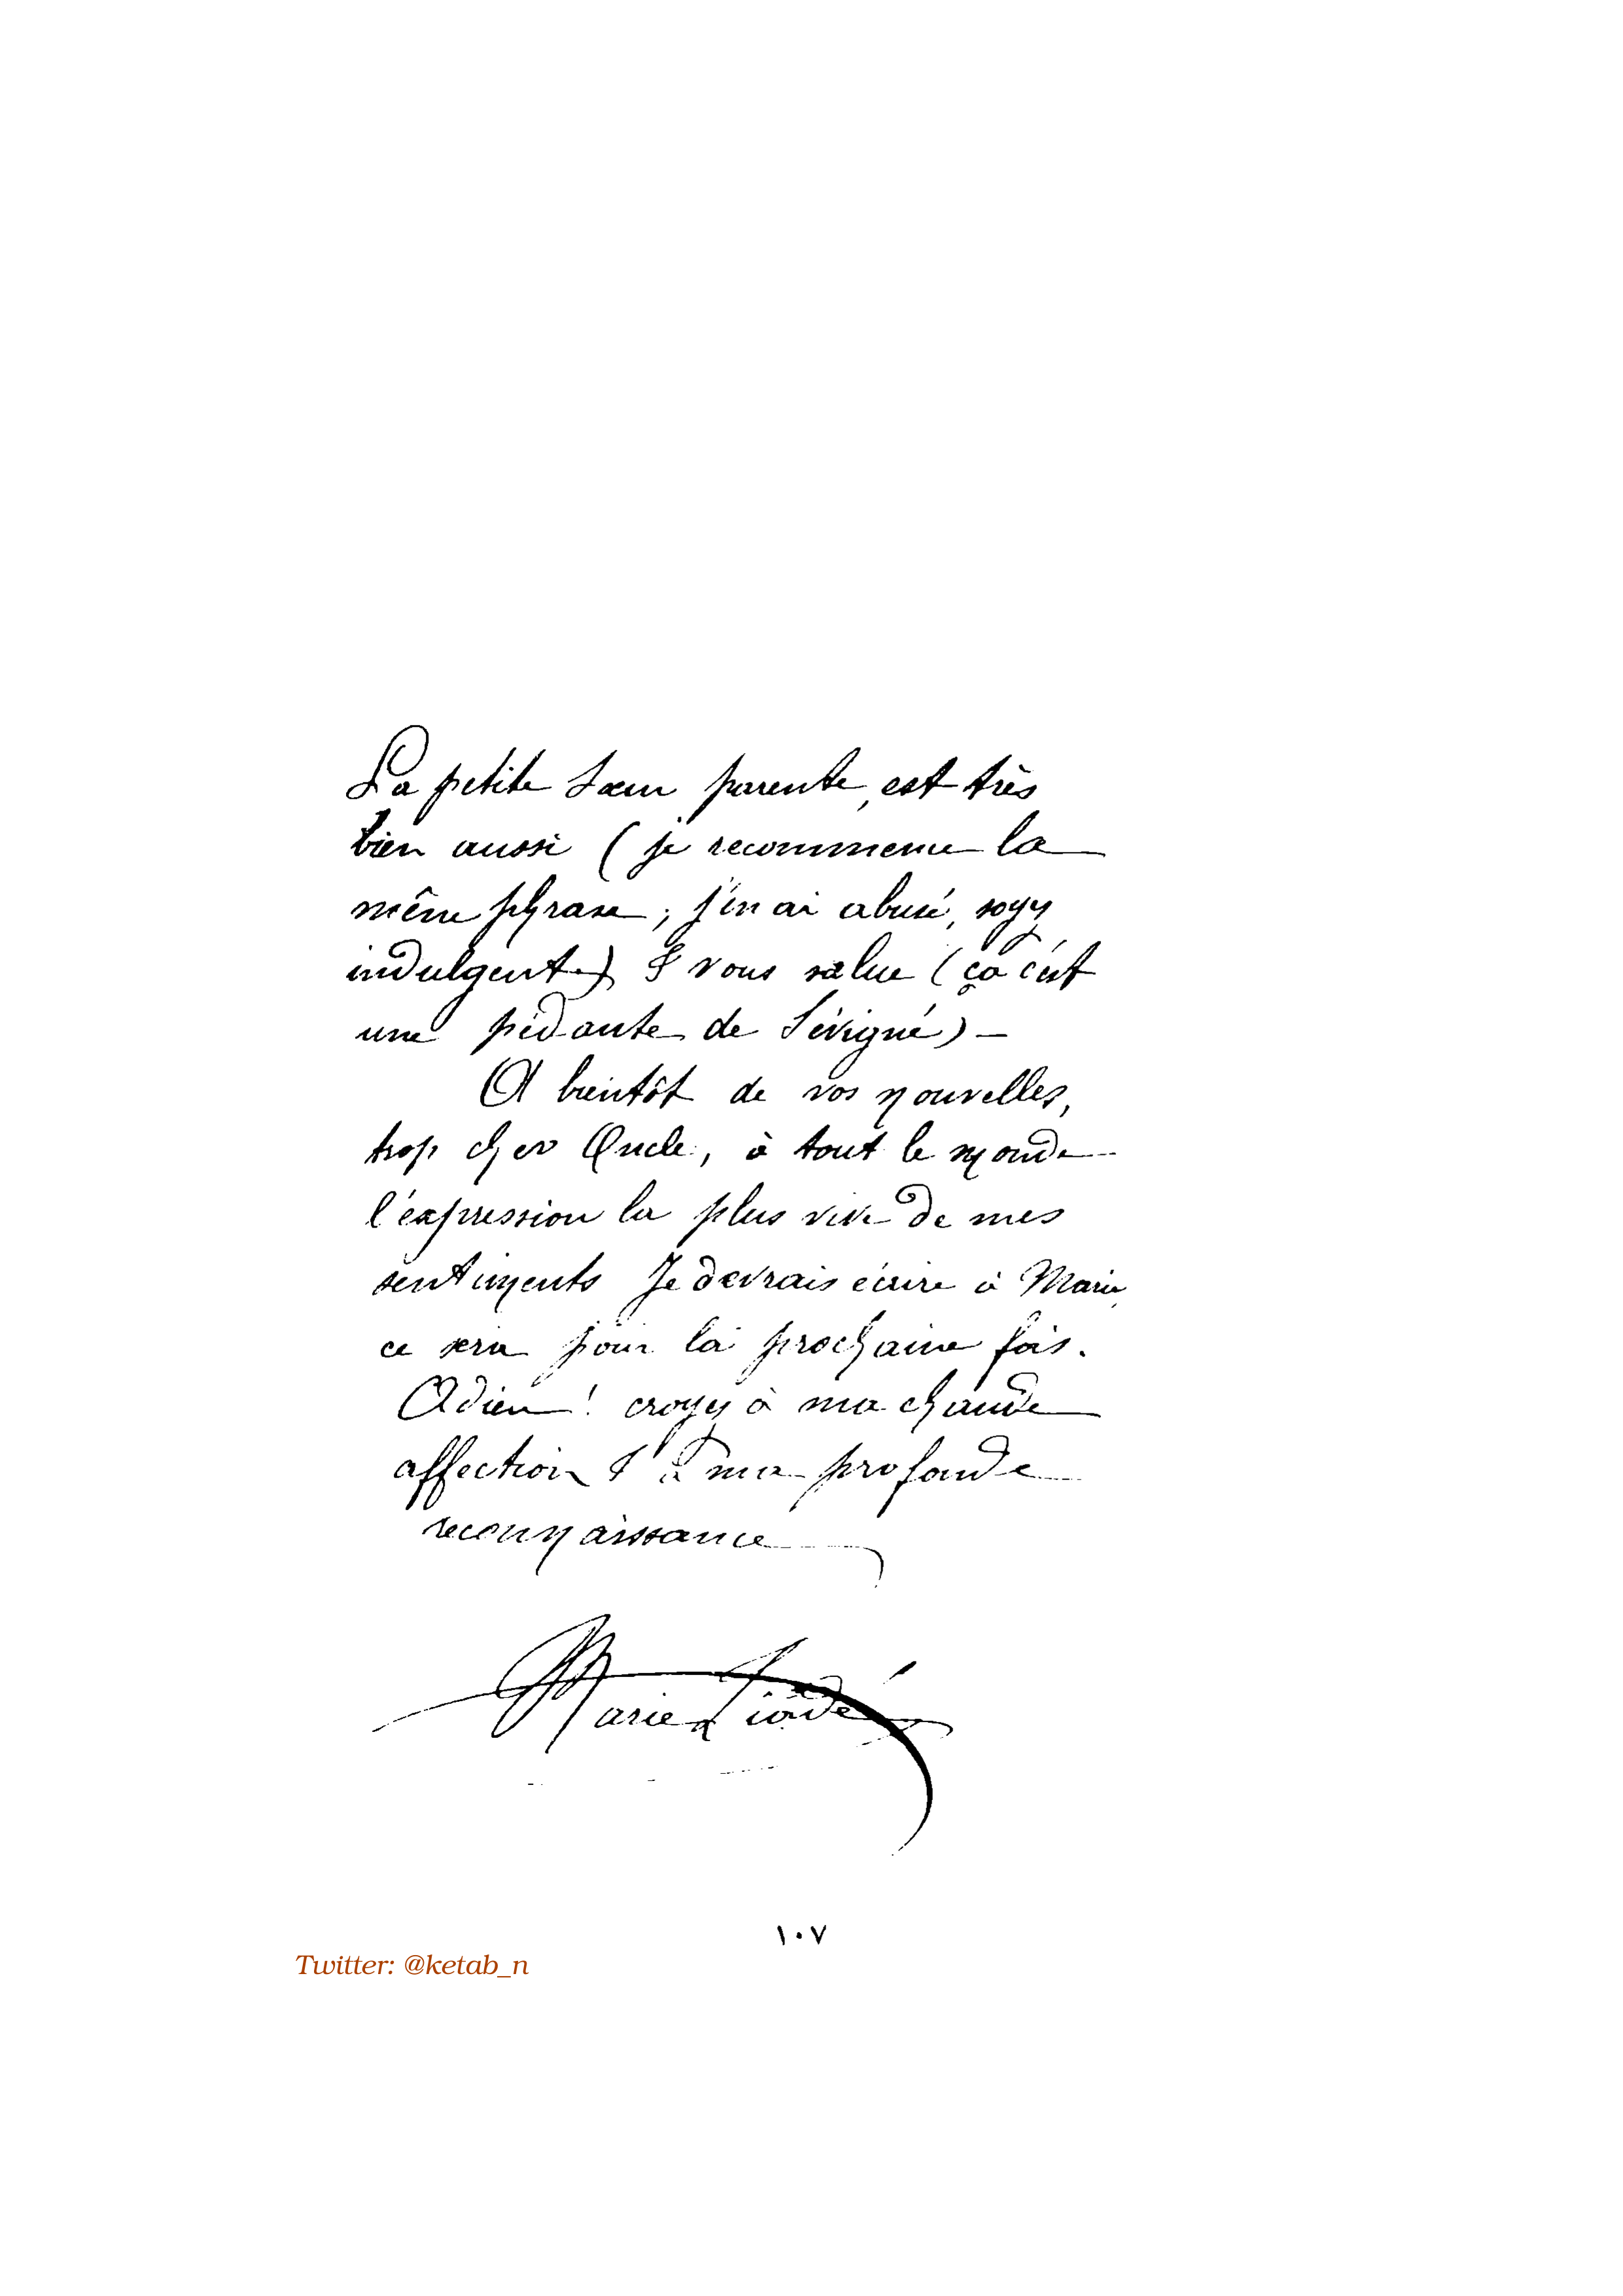 La petite Sœur parente, est très
bien aussi (je recommence la
même phrase; j'en ai abusé, soyez
indulgent.) & vous salue (ça c'est
une pédante de Sévigné) –
A bientôt de vos nouvelles,
trop cher Oncle, à tout le monde
l'expression la plus vive de mes
sentiments Je devrais écrire à Marie,
ce sera pour la prochaine fois.
Adieu! croyez à ma chaude
affection & à ma profonde
reconnaissance
Marie Ziadé
١٠٧
Twitter: @ketab_n